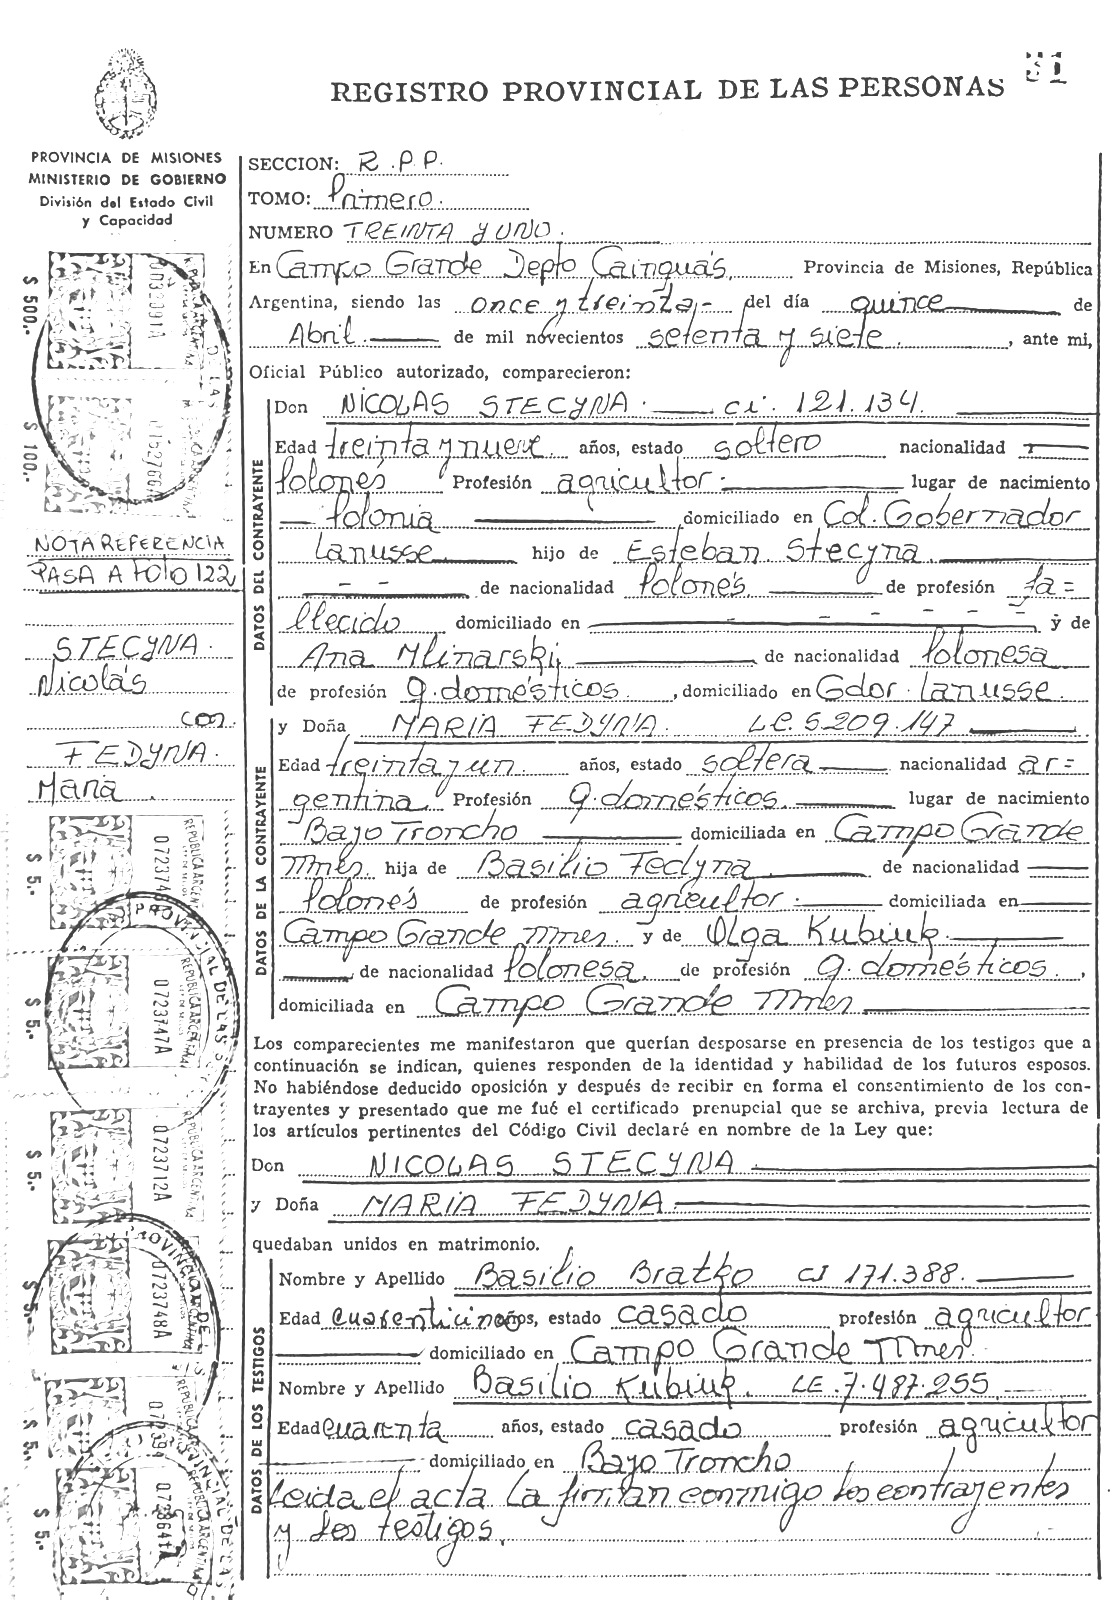 31
REGISTRO PROVINCIAL DE LAS PERSONAS
PROVINCIA DE MISIONES
MINISTERIO DE GOBIERNO
División del Estado Civil
y Capacidad
$ 500.-
$ 100.-
NOTA REFERENCIA
PASA A FOLO 122
STECYNA.
Nicolás
con.
FEDYNA.
María
$ 5.-
$ 5.-
0723747A
REPUBLICA ARGENTINA
$ 5.-
0723712A
REPUBLICA ARGENTINA
$ 5.-
0723748A
$ 5.-
$ 5.-
SECCION: R.P.P.
TOMO: Primero.
NUMERO TREINTA Y UNO.
En Campo Grande Depto Cainguás, Provincia de Misiones, República
Argentina, siendo las once y treinta,- del día quince de
Abril. de mil novecientos setenta y siete. , ante mi,
Oficial Público autorizado, comparecieron:
DATOS DEL CONTRAYENTE
Don NICOLAS STECYNA. ci. 121.134.
Edad treinta y nueve años, estado soltero nacionalidad
Polonés Profesión agricultor. lugar de nacimiento
Polonia domiciliado en Col. Gobernador
Lanusse hijo de Esteban Stecyna.
- - de nacionalidad Polonés. de profesión fa=
llecido domiciliado en - - - - - y de
Ana Mlinarski, de nacionalidad Polonesa
de profesión q. domésticos. , domiciliado en Gdor. Lanusse.
DATOS DE LA CONTRAYENTE
y Doña MARIA FEDYNA. LC. 5.209.147
Edad treinta y un años, estado soltera nacionalidad ar=
gentina Profesión q. domésticos. lugar de nacimiento
Bajo Troncho domiciliada en Campo Grande
Mnes hija de Basilio Fedyna de nacionalidad
Polonés de profesión agricultor. domiciliada en
Campo Grande Mnes. y de Olga Kubiuk.
de nacionalidad Polonesa. de profesión q. domésticos. ,
domiciliada en Campo Grande Mnes
Los comparecientes me manifestaron que querían desposarse en presencia de los testigos que a
continuación se indican, quienes responden de la identidad y habilidad de los futuros esposos.
No habiéndose deducido oposición y después de recibir en forma el consentimiento de los con-
trayentes y presentado que me fué el certificado prenupcial que se archiva, previa lectura de
los artículos pertinentes del Código Civil declaré en nombre de la Ley que:
Don NICOLAS STECYNA
y Doña MARIA FEDYNA.
quedaban unidos en matrimonio.
DATOS DE LOS TESTIGOS
Nombre y Apellido Basilio Bratko CI 171.388.
Edad cuarenticinco años, estado casado profesión agricultor
domiciliado en Campo Grande Mnes.
Nombre y Apellido Basilio Kubiuk. LE. 7.487.255
Edad cuarenta años, estado casado profesión agricultor
domiciliado en Bajo Troncho
Leida el acta la firman conmigo los contrayentes
y los testigos.